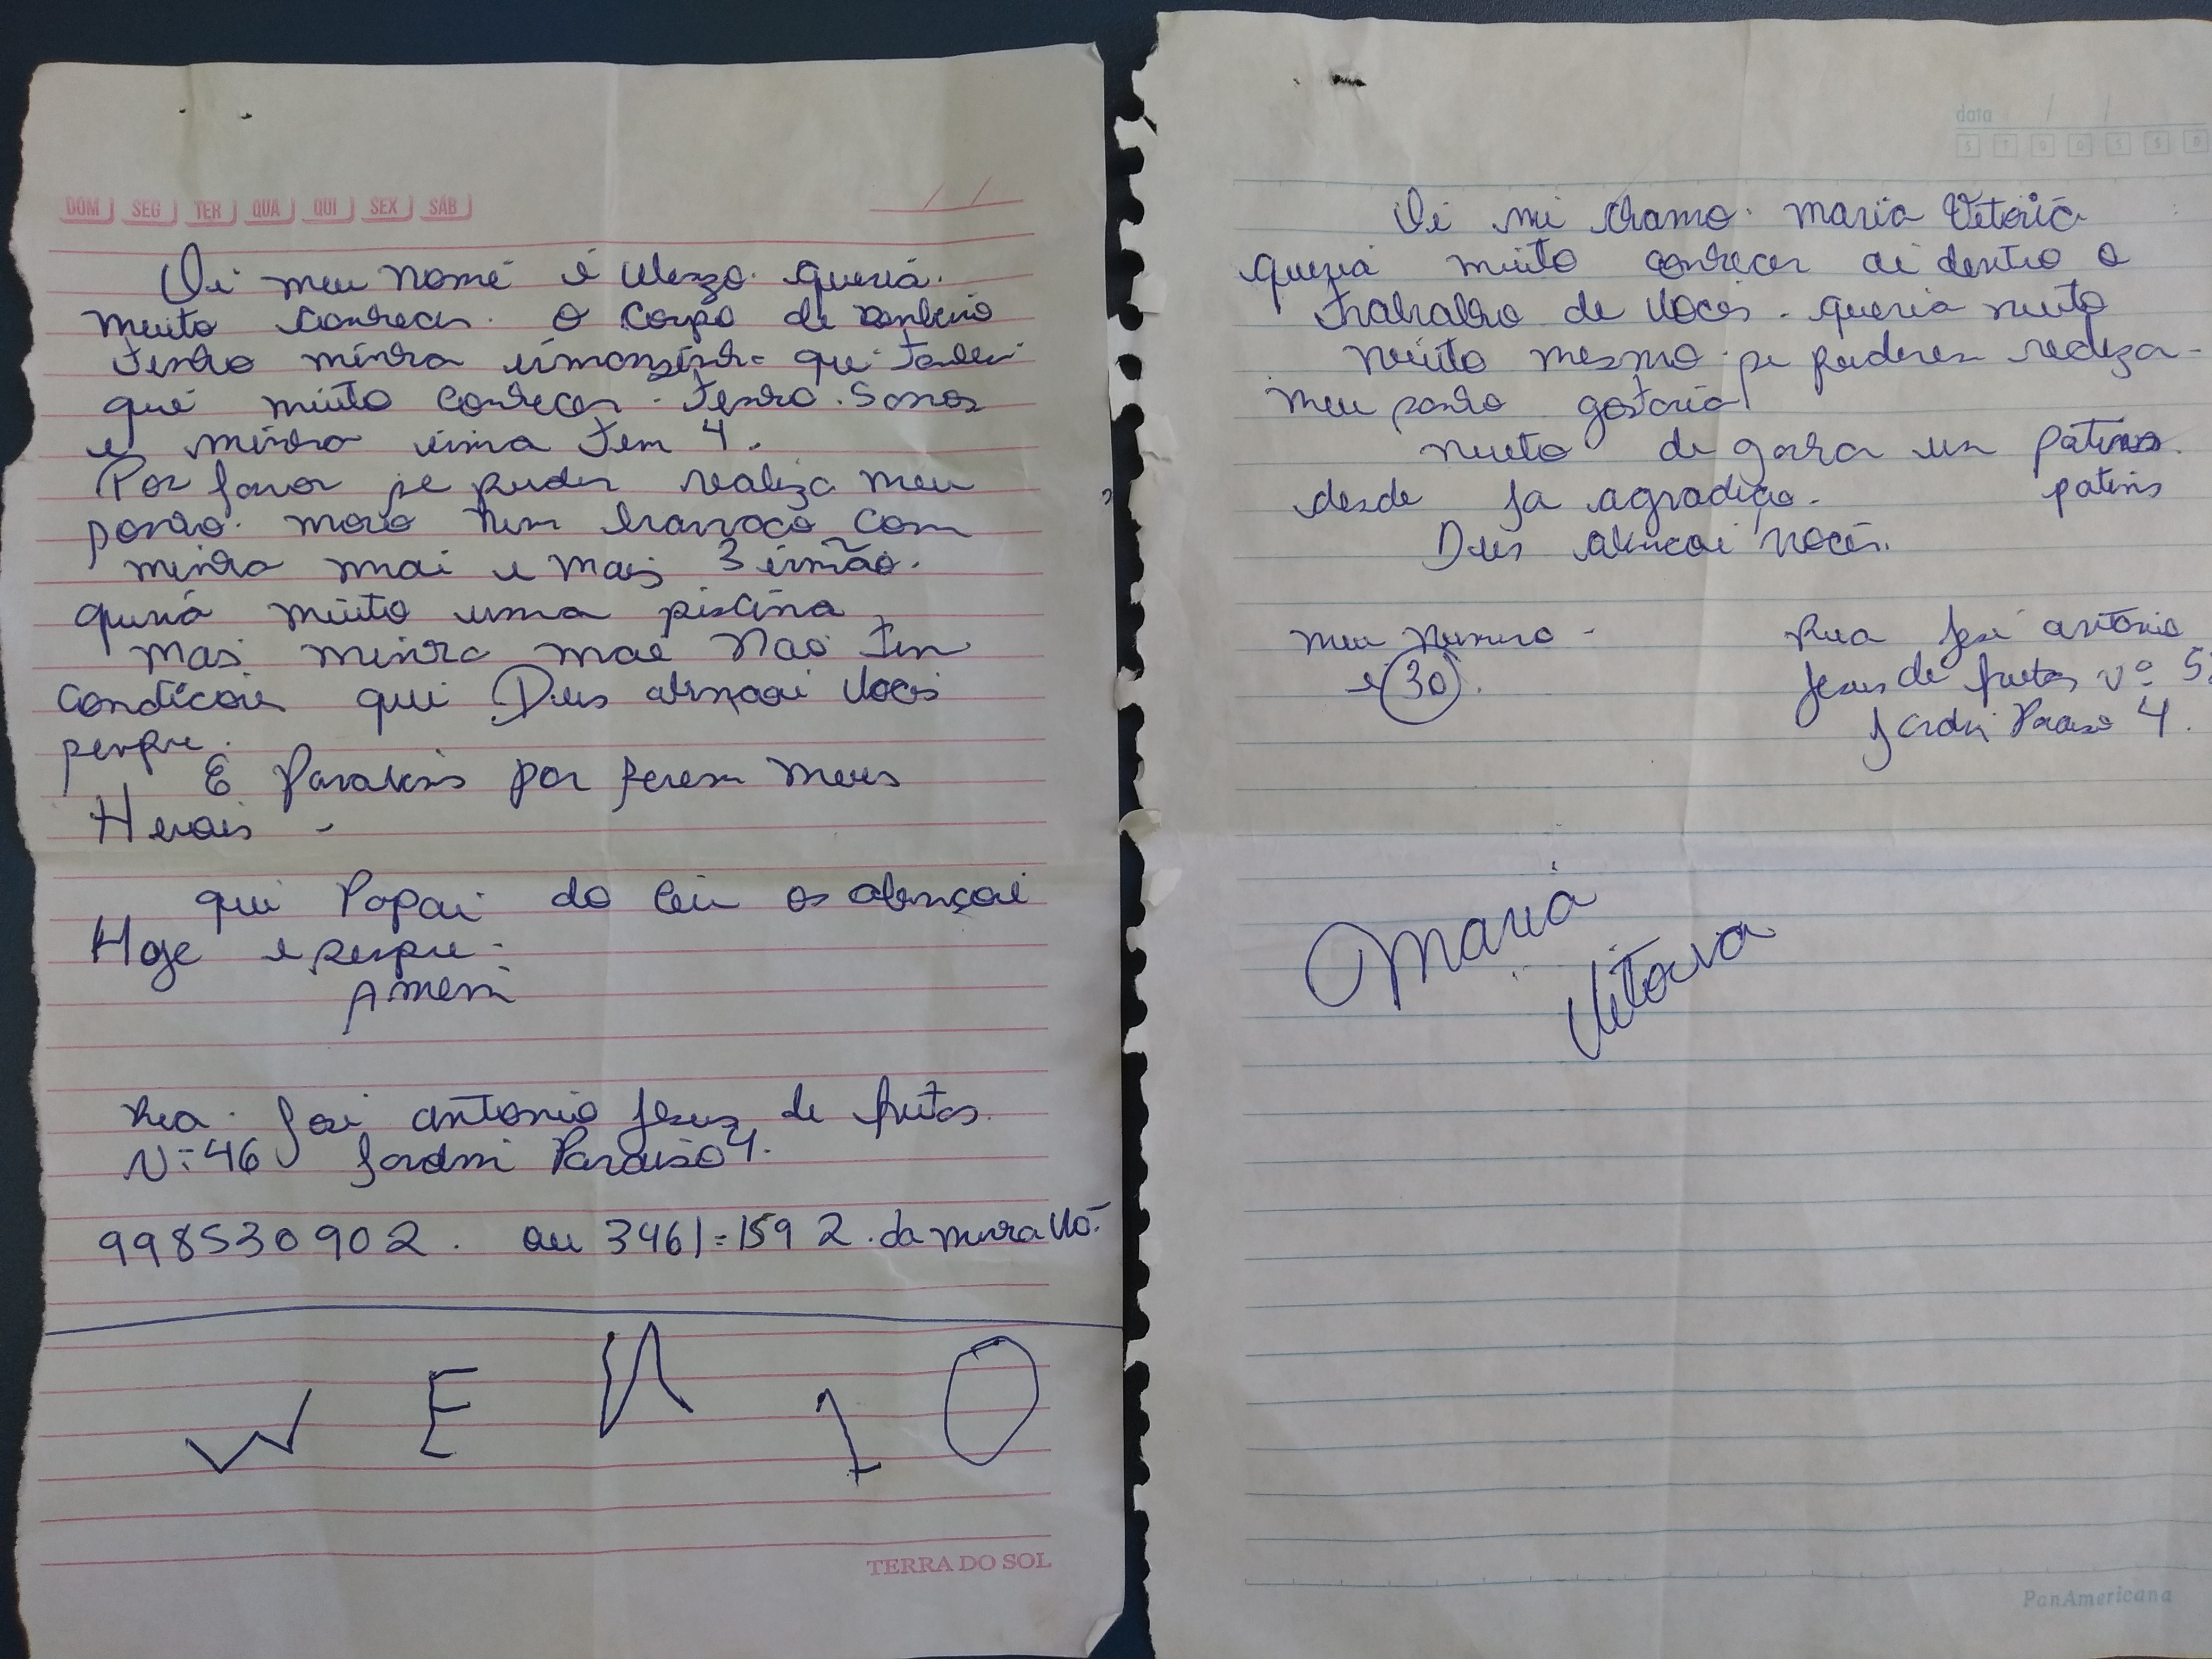 DOM SEG TER QUA QUI SEX SÁB
Oi meu nome é queria.
muito conhecer. o corpo de
Tenho minha que
que muito conhecer. Tenho. 5 anos
e minha irma Tem 4.
Por favor se puder realiza meu
sonho. moro num barraco com
minha mai e mais 3 irmão.
queria muito uma piscina
mas minha mae Não Tem
condicois qui Deus abençoai voces
senpre.
E Parabens por serem meus
Herois -
qui Papai do Ceu os abençoai
Hoje e senpre.
Amem
Rua. José antonio Jesus de freitas.
Nº 46 Jardim Paraiso 4.
998530902. ou 3461=1592. da minha Vó.
W E 1 0
TERRA DO SOL
data / /
S T Q Q S S D
Oi mi chamo. maria Vitória
queria muito conhecer ai dentro o
Trabalho de voces. queria muito
muito mesmo. se puderem realiza-
meu sonho gostaria
muito de ganha um
desde ja agradeço. patins
Deus abencoi voces.
meu numero -
é 30.
Rua José antonio
Jesus de freitas nº 5
Jardim Paraiso 4.
Maria
Vitória
PanAmericana